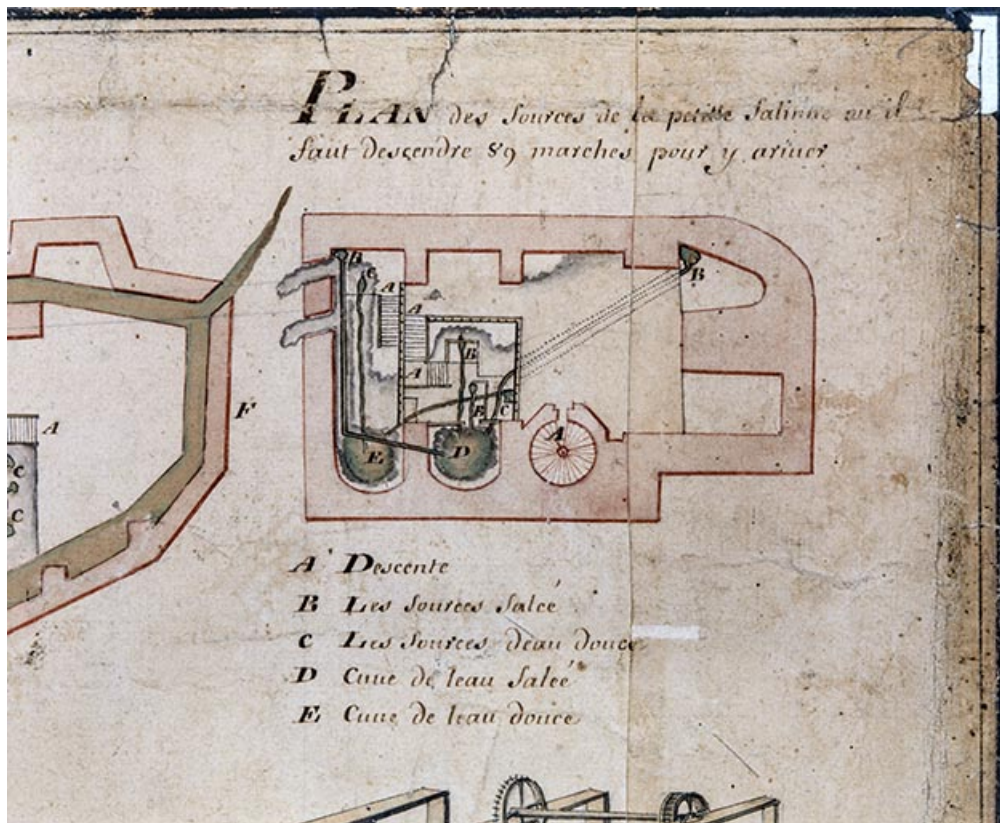 PLAN des sources de la petitte Salinne ou il
faut descendre 89 marches pour y ariuer
B
B
C
A
A
B
A
B
C
F
A
A
E
D
C
C
A Descente
B Les sources saleé
C Les sources deau douce
D Cuue de leau saleé
E Cuue de leau douce